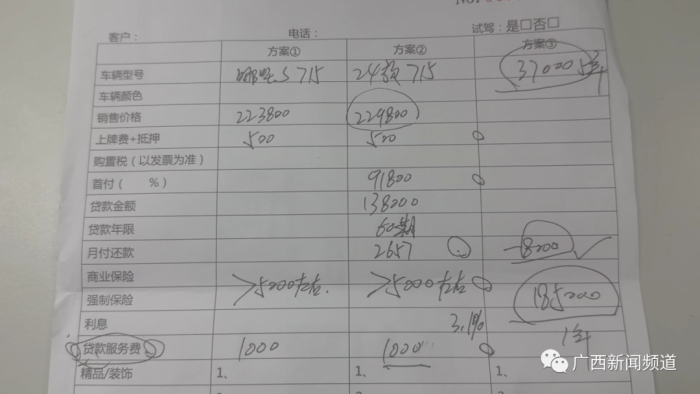 No.
客户： 电话： 试驾：是□否□
方案① 方案② 方案③
车辆型号 哪吒S 715 24款 715 37000
车辆颜色
销售价格 223800 229800
上牌费+抵押 500 500
购置税（以发票为准）
首付（ %） 91800
贷款金额 138000
贷款年限 60期
月付还款 2657 -8200
商业保险 >5000左右. >5000左右
强制保险 185000
利息 3.1%
贷款服务费 1000 1000
精品/装饰 1、 1、 1、
广西新闻频道